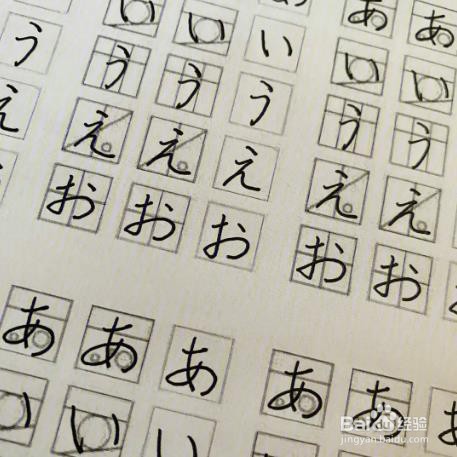 い い い あ あ
う う う う い い
え え え え う う
お お お え え
お お お
あ あ あ あ あ
い い い
Baidu经验
jingyan.baidu.com